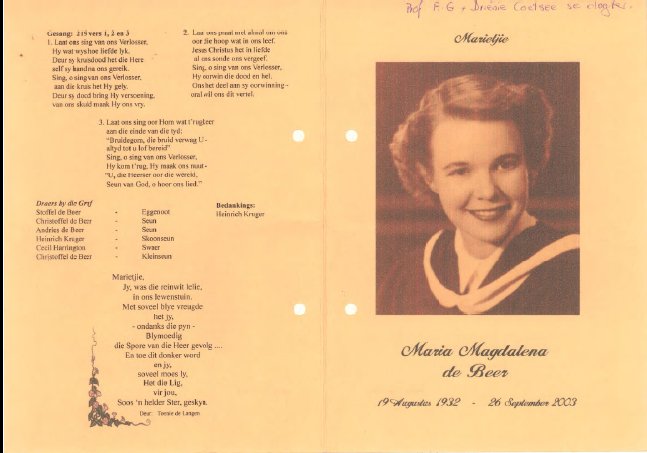 Gesang: 215 vers 1, 2 en 3
1. Laat ons sing van ons Verlosser,
Hy wat wyshoe liefde lyk.
Deur sy kruisdood het die Here
self sy handna ons gereik.
Sing, o singvan ons Verlosser,
aan die kruis het Hy gely.
Deur sy dood bring Hy versoening,
van ons skuld maak Hy ons vry.
2. Laat ons praat met almal om ons
oor die hoop wat in ons leef.
Jesus Christus het in liefde
al ons sonde ons vergeef.
Sing, o sing van ons Verlosser,
Hy oorwin die dood en hel.
Ons het deel aan sy oorwinning -
oral wil ons dit vertel.
3. Laat ons sing oor Hom wat t'rugkeer
aan die einde van die tyd:
"Bruidegom, die bruid verwag U -
altyd tot u lof bereid"
Sing, o sing van ons Verlosser,
Hy kom t'rug, Hy maak ons nuut -
"U, die Heerser oor die wêreld,
Seun van God, o hoor ons lied."
Draers by die Graf
Stoffel de Beer - Eggenoot
Christoffel de Beer - Seun
Andries de Beer - Seun
Heinrich Kruger - Skoonseun
Cecil Harrington - Swaer
Christoffel de Beer - Kleinseun
Bedankings:
Heinrich Kruger
Marietjie,
Jy, was die reinwit lelie,
in ons lewenstuin.
Met soveel blye vreugde
het jy,
- ondanks die pyn -
Blymoedig
die Spore van die Heer gevolg ....
En toe dit donker word
en jy,
soveel moes ly,
Het die Lig,
vir jou,
Soos 'n helder Ster, geskyn.
Deur: Toesie de Langen
Prof F.G. + Driesie Coetsee se dogter.
Marietjie
Maria Magdalena
de Beer
19 Augustus 1932 - 26 September 2003